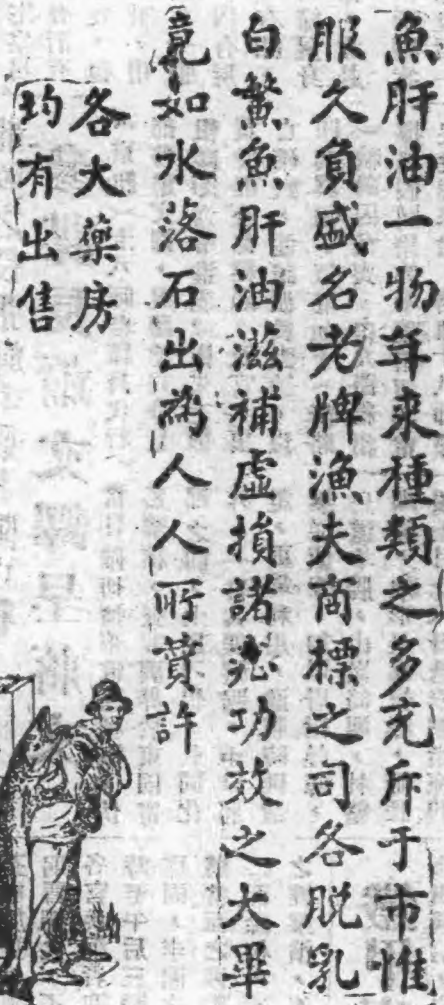 魚肝油一物年來種類之多充斥于市惟
服久負盛名老牌漁夫商標之司各脫乳
白鰵魚肝油滋補虛損諸恙功效之大畢
竟如水落石出為人人所贊許
各大藥房
均有出售